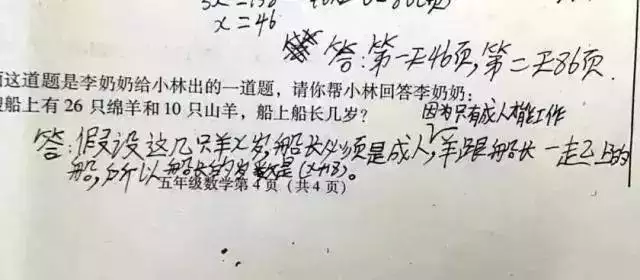 x=46
答:第一天46页,第二天86页.
这道题是李奶奶给小林出的一道题,请你帮小林回答李奶奶:
船上有 26 只绵羊和 10 只山羊,船上船长几岁?
因为只有成人才能工作
答:假设这几只羊x岁,船长必须是成人,羊跟船长一走上的
船,所以船长的岁数是(x+18)。
五年级数学第 4 页(共 4 页)